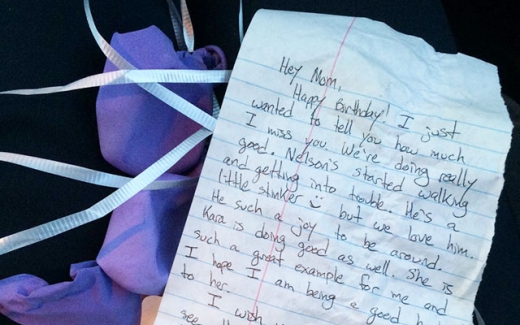 Hey Mom,
Happy Birthday! I just
wanted to tell you how much
I miss you. We're doing really
good. Nelson's started walking
and getting into trouble. He's a
little stinker but we love him.
He such a joy to be around.
Kara is doing good as well. She is
such a great example for me and
I hope I am being a good
to her.
I wish